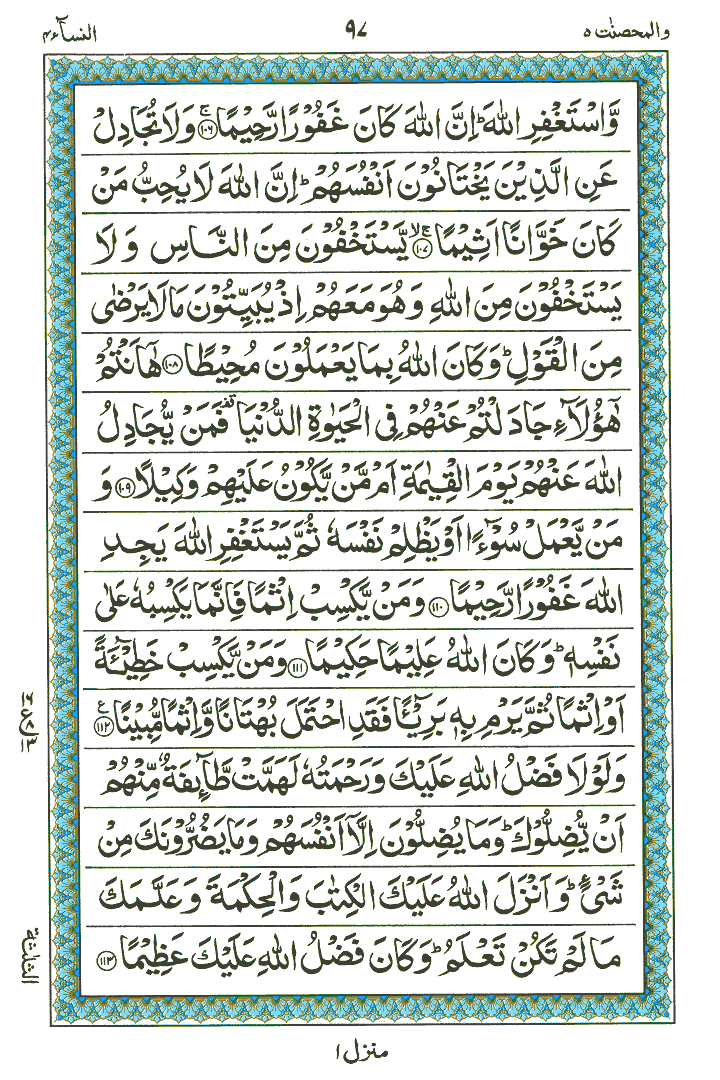 والمحصنت ٥ ٩٧ النسآء ٤
وَّاسْتَغْفِرِ اللّٰهَ ؕ اِنَّ اللّٰهَ كَانَ غَفُوْرًا رَّحِيْمًا ۚ‏﴿۱۰۶﴾ وَلَا تُجَادِلْ
عَنِ الَّذِيْنَ يَخْتَانُوْنَ اَنْفُسَهُمْ ؕ اِنَّ اللّٰهَ لَا يُحِبُّ مَنْ
كَانَ خَوَّانًا اَثِيْمًا ۚۙ‏﴿۱۰۷﴾ يَّسْتَخْفُوْنَ مِنَ النَّاسِ وَ لَا
يَسْتَخْفُوْنَ مِنَ اللّٰهِ وَ هُوَ مَعَهُمْ اِذْ يُبَيِّتُوْنَ مَا لَا يَرْضٰى
مِنَ الْقَوْلِ ؕ وَ كَانَ اللّٰهُ بِمَا يَعْمَلُوْنَ مُحِيْطًا ﴿۱۰۸﴾ هٰۤاَنْتُمْ
هٰۤؤُلَآءِ جَادَلْتُمْ عَنْهُمْ فِى الْحَيٰوةِ الدُّنْيَا قف فَمَنْ يُّجَادِلُ
اللّٰهَ عَنْهُمْ يَوْمَ الْقِيٰمَةِ اَمْ مَّنْ يَّكُوْنُ عَلَيْهِمْ وَكِيْلًا ﴿۱۰۹﴾ وَ
مَنْ يَّعْمَلْ سُوْٓءًا اَوْ يَظْلِمْ نَفْسَهٗ ثُمَّ يَسْتَغْفِرِ اللّٰهَ يَجِدِ
اللّٰهَ غَفُوْرًا رَّحِيْمًا ﴿۱۱۰﴾ وَ مَنْ يَّكْسِبْ اِثْمًا فَاِنَّمَا يَكْسِبُهٗ عَلٰى
نَفْسِهٖ ؕ وَ كَانَ اللّٰهُ عَلِيْمًا حَكِيْمًا ﴿۱۱۱﴾ وَ مَنْ يَّكْسِبْ خَطِيْٓئَةً
اَوْ اِثْمًا ثُمَّ يَرْمِ بِهٖ بَرِيْٓـًٔا فَقَدِ احْتَمَلَ بُهْتَانًا وَّ اِثْمًا مُّبِيْنًا ﴿۱۱۲﴾ ع
وَلَوْلَا فَضْلُ اللّٰهِ عَلَيْكَ وَرَحْمَتُهٗ لَهَمَّتْ طَّآئِفَةٌ مِّنْهُمْ
اَنْ يُّضِلُّوْكَ ؕ وَمَا يُضِلُّوْنَ اِلَّاۤ اَنْفُسَهُمْ وَمَا يَضُرُّوْنَكَ مِنْ
شَىْءٍ ؕ وَ اَنْزَلَ اللّٰهُ عَلَيْكَ الْكِتٰبَ وَالْحِكْمَةَ وَ عَلَّمَكَ
مَا لَمْ تَكُنْ تَعْلَمُ ؕ وَ كَانَ فَضْلُ اللّٰهِ عَلَيْكَ عَظِيْمًا ﴿۱۱۳﴾
الثلثة
منزل ١